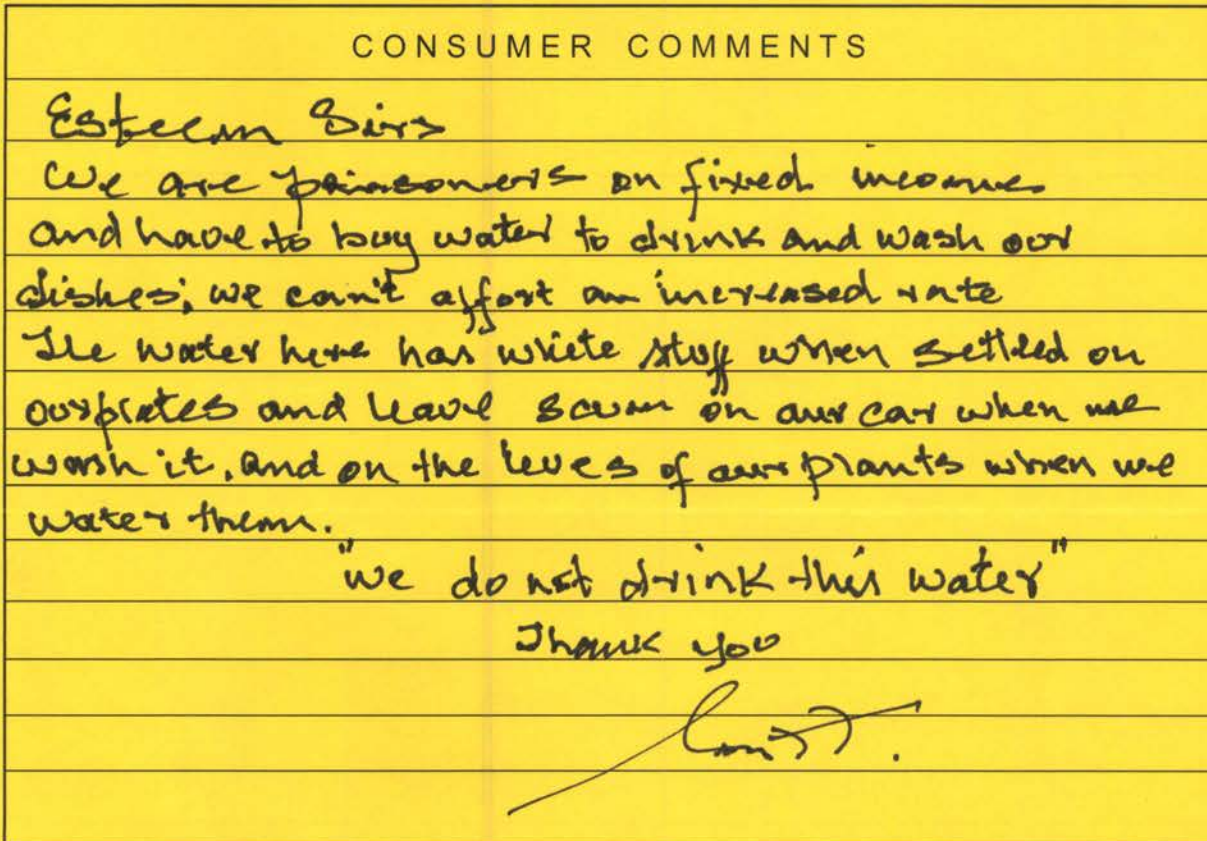 CONSUMER COMMENTS
Esteem Sirs
We are painsoners on fixed income
and have to buy water to drink and wash our
dishes; we can't affort an increased rate
The water here has wriete stuff when settled on
ourplates and leave scum on our car when we
wash it. and on the leves of our plants when we
water them.
"we do not drink this water"
Thank you